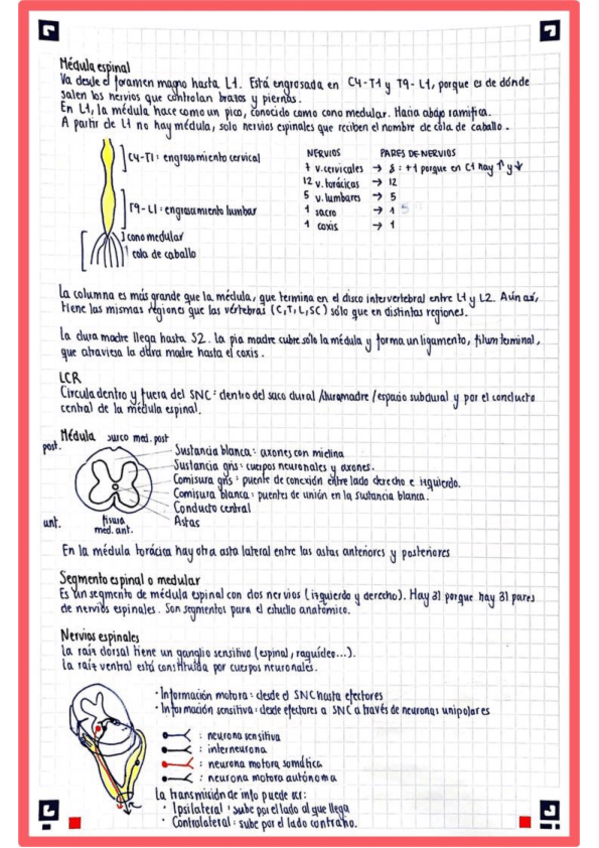 Médula espinal
Va desde el foramen magno hasta L1. Está engrosada en C4-T1 y T9-L1, porque es de dónde
salen los nervios que controlan brazos y piernas.
En L1, la médula hace como un pico, conocido como cono medular. Hacia abajo ramifica.
A partir de L1 no hay médula, solo nervios espinales que reciben el nombre de cola de caballo.
C4-T1: engrosamiento cervical
T9-L1: engrosamiento lumbar
cono medular
cola de caballo
NERVIOS PARES DE NERVIOS
7 v. cervicales → 8: +1 porque en C1 hay ↑ y ↓
12 v. torácicas → 12
5 v. lumbares → 5
1 sacro → 1 5
1 coxis → 1
La columna es más grande que la médula, que termina en el disco intervertebral entre L1 y L2. Aún así,
tiene las mismas regiones que las vértebras (C,T,L,SC) sólo que en distintas regiones.
La dura madre llega hasta S2. La pia madre cubre sólo la médula y forma un ligamento, filum terminal,
que atraviesa la dura madre hasta el coxis.
LCR
Circula dentro y fuera del SNC: dentro del saco dural /duramadre /espacio subdural y por el conducto
central de la médula espinal.
Médula surco med. post
post.
Sustancia blanca: axones con mielina
Sustancia gris: cuerpos neuronales y axones.
Comisura gris: puente de conexión entre lado derecho e izquierdo.
Comisura blanca: puentes de unión en la sustancia blanca.
Conducto central
Astas
ant. fisura
med. ant.
En la médula torácica hay otra asta lateral entre las astas anteriores y posteriores
Segmento espinal o medular
Es un segmento de médula espinal con dos nervios (izquierdo y derecho). Hay 31 porque hay 31 pares
de nervios espinales. Son segmentos para el estudio anatómico.
Nervios espinales
La raíz dorsal tiene un ganglio sensitivo (espinal, raquídeo...).
La raíz ventral está constituida por cuerpos neuronales.
· Información motora: desde el SNC hasta efectores
· Información sensitiva: desde efectores a SNC a través de neuronas unipolares
: neurona sensitiva
: interneurona
: neurona motora somática
: neurona motora autónoma
La transmisión de info puede ser:
· Ipsilateral: sube por el lado al que llega
· Contralateral: sube por el lado contrario.